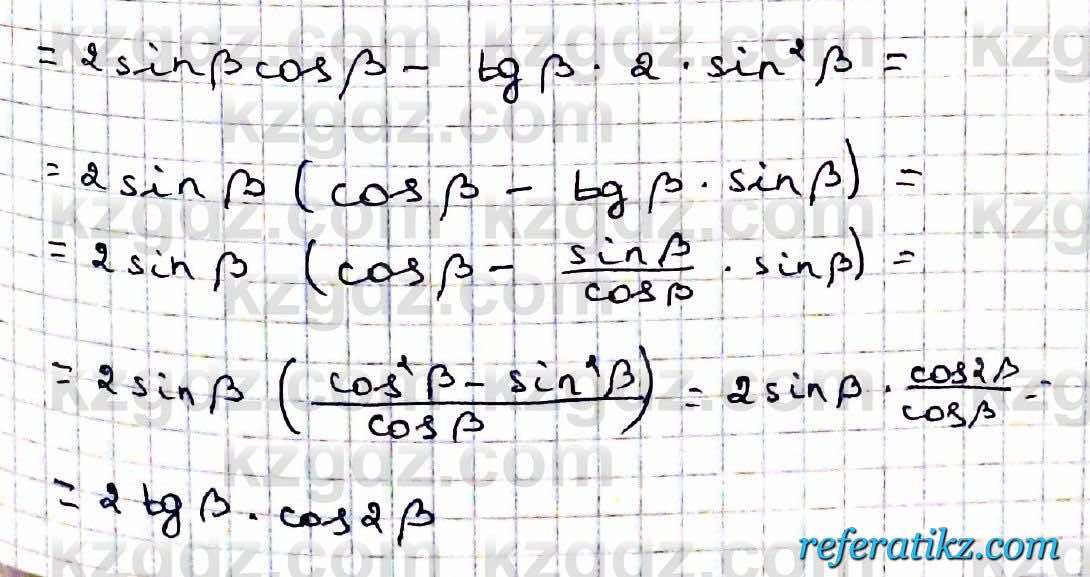 = 2 sin β cos β − tg β · 2 · sin² β =
= 2 sin β (cos β − tg β · sin β) =
= 2 sin β (cos β − sin β / cos β · sin β) =
= 2 sin β ((cos² β − sin² β) / cos β) = 2 sin β · cos 2β / cos β =
= 2 tg β · cos 2β
referatikz.com
kzgdz.com